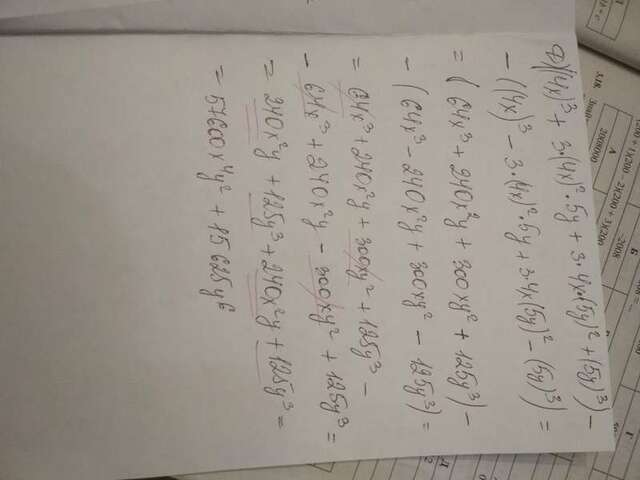 Ф)((4x)³ + 3·(4x)²·5y + 3·4x·(5y)² + (5y)³) –
– ((4x)³ – 3·(4x)²·5y + 3·4x(5y)² – (5y)³) =
= (64x³ + 240x²y + 300xy² + 125y³) –
– (64x³ – 240x²y + 300xy² – 125y³) =
= 64x³ + 240x²y + 300xy² + 125y³ –
– 64x³ + 240x²y – 300xy² + 125y³ =
= 240x²y + 125y³ + 240x²y + 125y³ =
= 57600x⁴y² + 15625y⁶
2008000
А
-2008
Б